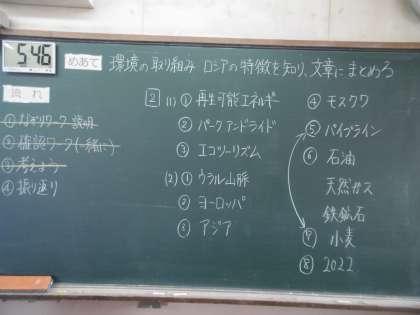 5:46
めあて 環境の取り組み ロシアの特徴を知り、文章にまとめる
流れ
① なぞりワーク 説明
② 確認ワーク(一緒に)
③ 考えよう
④ 振り返り
2 (1) ① 再生可能エネルギー
② パークアンドライド
③ エコツーリズム
(2) ① ウラル山脈
② ヨーロッパ
③ アジア
④ モスクワ
⑤ パイプライン
⑥ 石油
天然ガス
鉄鉱石
⑦ 小麦
⑧ 2022